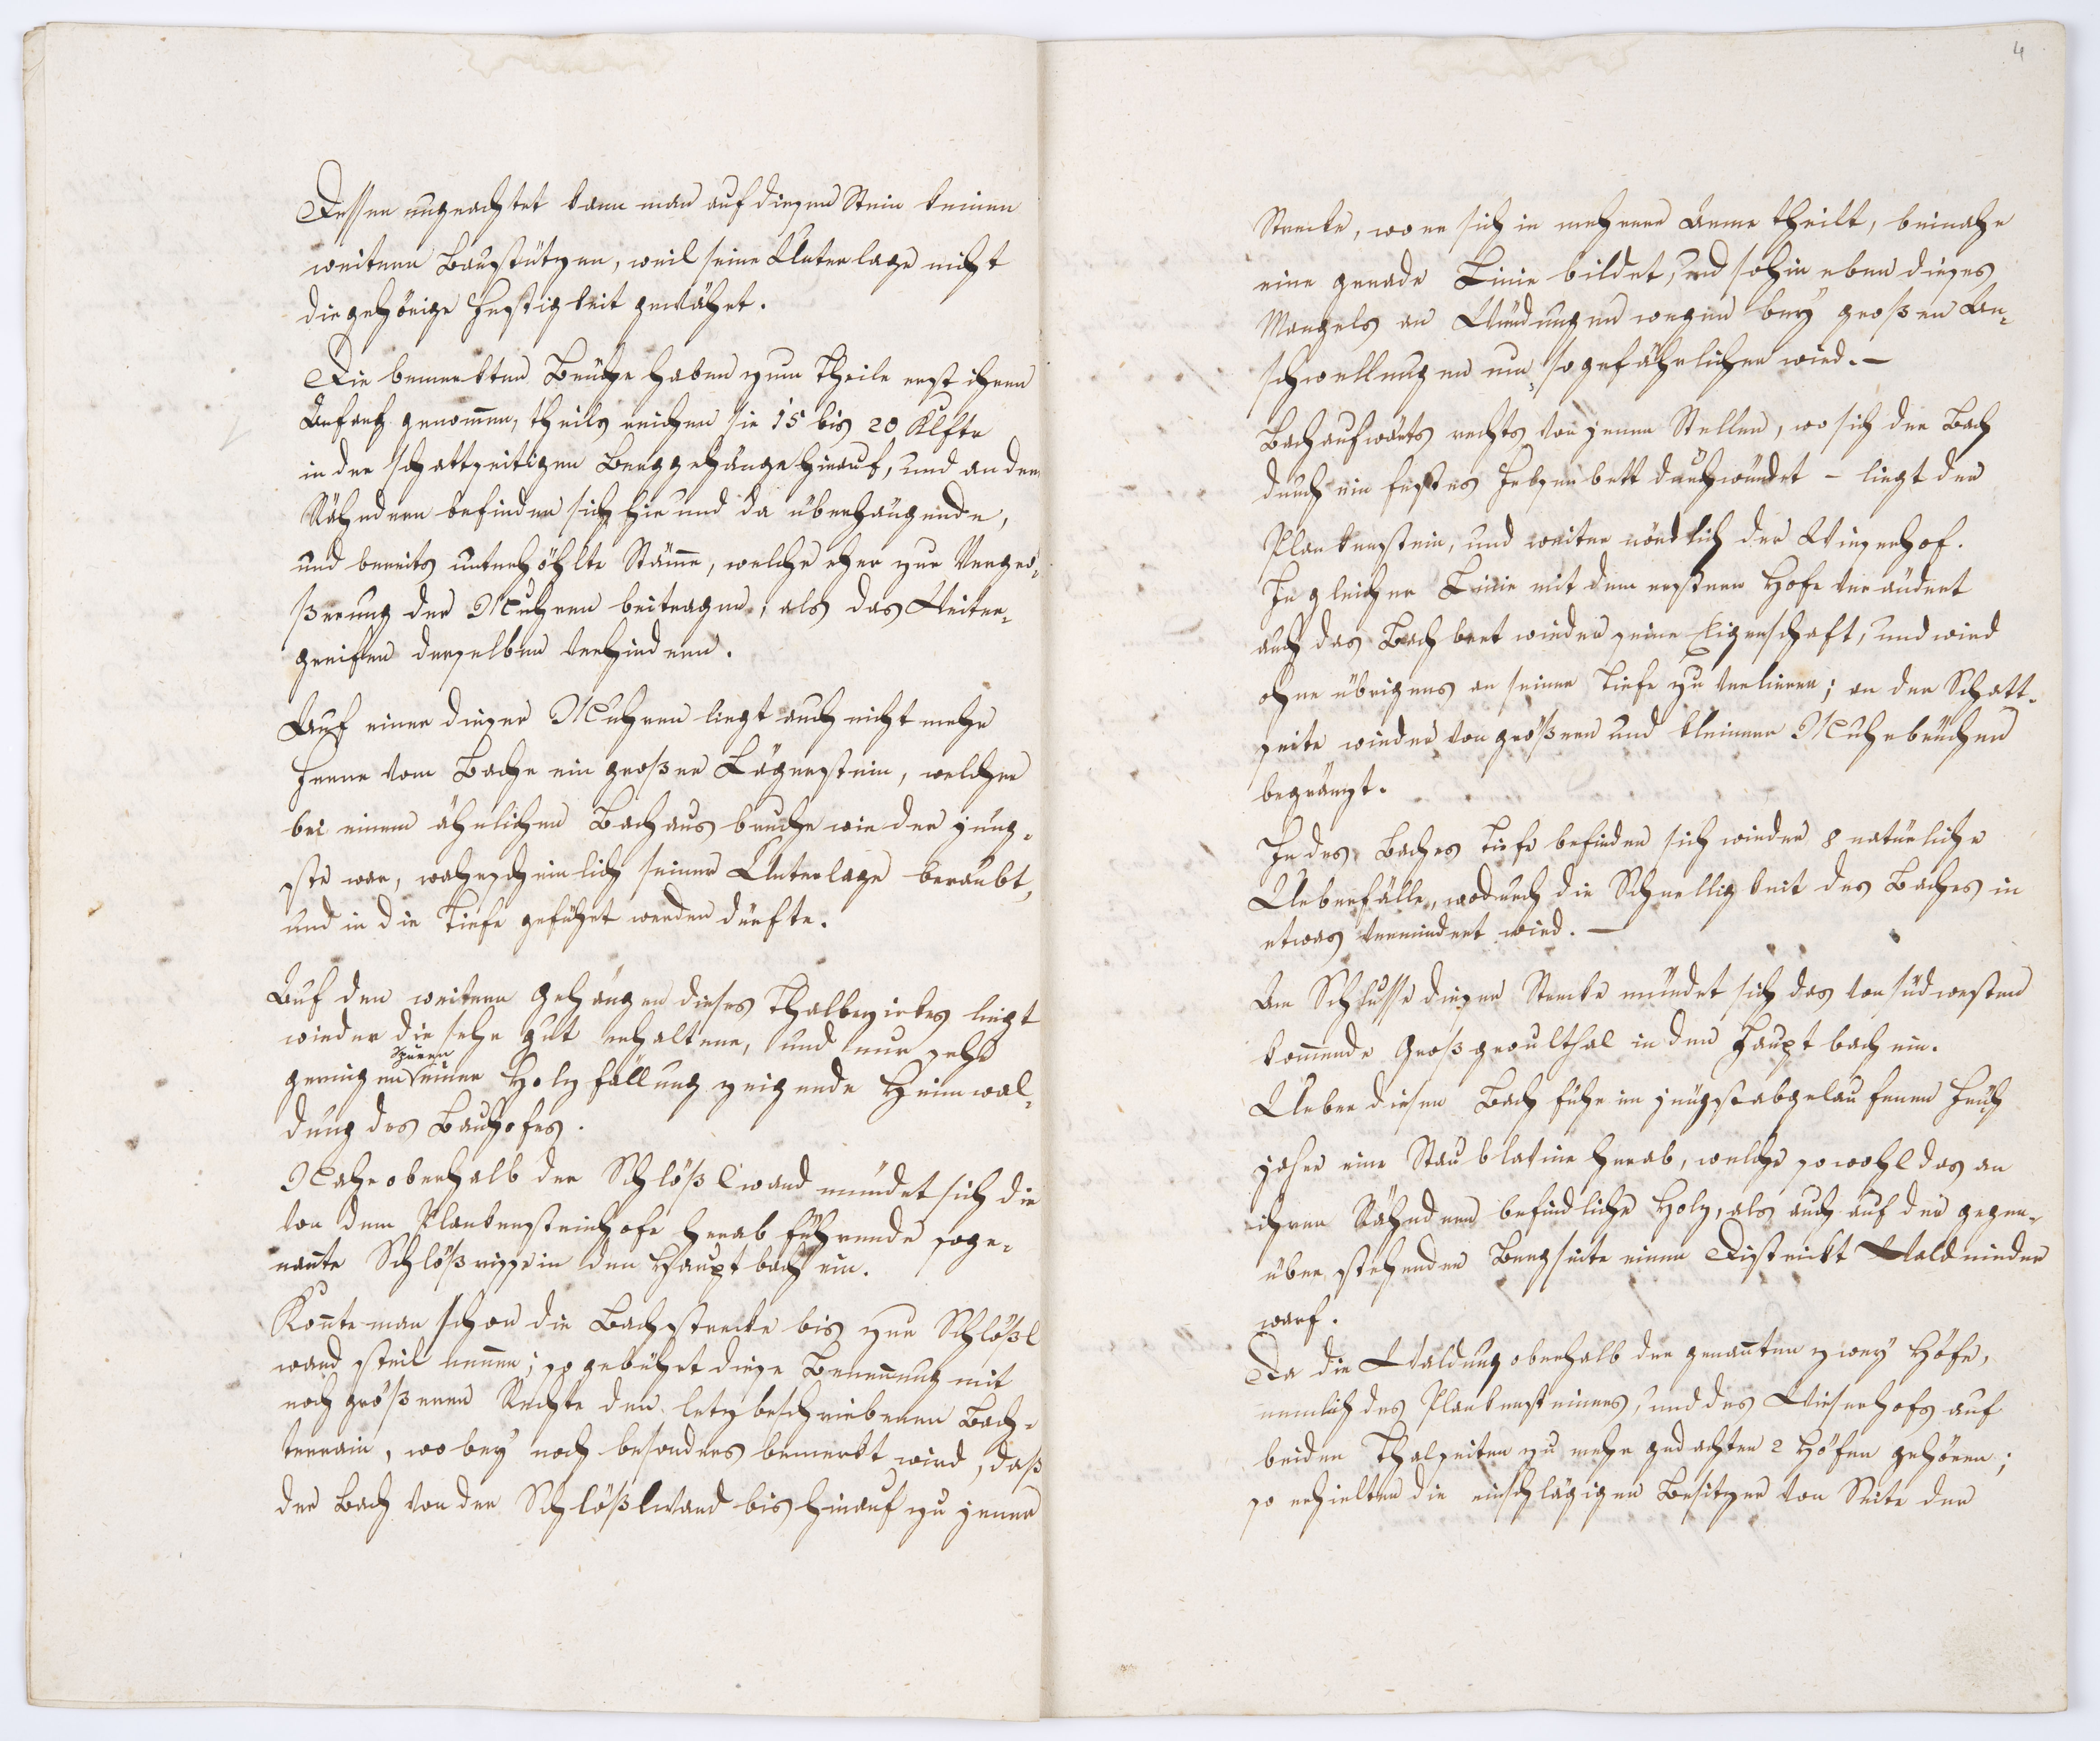 Dessen ungeachtet kann man auf diesen Stein keinen
weitern Bau stützen, weil seine Unterlage nicht
die gehörige Festigkeit gewähret.
Die bemerkten Brüche haben zum Theile erst ihren
Anfang genom̄en, theils reichen sie 15 bis 20 Klfter
in der schattseitigen Berggehänge hinauf, und an den
Rähndern befinden sich hie und da überhängende,
und bereits unterhöhlte Stäm̄e, welche eher zur Vergrö-
ßerung der Muhren beitragen, als das Weiter-
greifen derselben verhindern.
Auf einer dieser Muhren liegt auch nicht mehr
ferne vom Bache ein großer Lägerstein, welcher
bei einem ähnlichen Bachausbruche wie der jüng-
ste war, wahrscheinlich seiner Unterlage beraubt,
und in die Tiefe geführt werden dürfte.
Auf den weitern Gehängen dieses Thalbezirkes liegt
wieder die sehr gut erhaltene, und nur sehr
Spuren
geringe einer Holzfällung zeigende Heimwal-
dung des Bauhofes.
Nahe oberhalb der Schlößlwand mündet sich die
von dem Plankensteinhofe herab führende soge-
nan̄te Schlößrisse in den Hauptbach ein.
Kon̄te man schon die Bachstrecke bis zur Schlößl
wand steil nennen; so gebührt diese Benen̄ung mit
noch größeren Rechte den letzbeschriebenen Bach-
terrain, wobey noch besonders bemerkt wird, daß
der Bach von der Schlößlwand bis hinauf zu jener
4
Strecke, wo er sich in mehrere Arme theilt, beinahe
eine gerade Linie bildet, und sohin eben dieses
Mangels an Windungen wegen bey großen An-
schwellungen um so gefährlicher wird. –
Bachaufwärts rechts von jenen Stellen, wo sich der Bach
durch ein festes Felsenbett durchwindet – liegt der
Plankenstein, und weiter nördlich der Wieserhof.
In gleicher Linie mit dem ersteren Hofe verändert
auch das Bachbeet wieder seine Eigenschaft, und wird
ohne übrigens an seiner Tiefe zu verlieren; an der Schatt-
seite wieder von größern und kleinern Muhrbrüchen
begränzt.
In des Baches Tiefe befinden sich wieder 8 natürliche
Ueberfälle, wodurch die Schnelligkeit des Baches in
etwas vermindert wird. –
Am Schlusse dieser Strecke mündet sich das von südwesten
kom̄ende Großgroulthal in den Hauptbach ein.
Ueber diesen Bach fuhr im jüngstabgelaufenen Früh
jahre eine Staublavine herab, welche sowohl das an
ihren Rähndern befindliche Holz, als auch auf der gegen-
über stehenden Bergseite einen Districkt Wald nieder
warf.
Da die Waldung oberhalb der genan̄ten zwey Höfe,
nemlich des Plankensteiners, und des Wieserhofs auf
beiden Thalseiten zu mehr gedachten 2 Höfen gehören;
so erhielten die einschlägigen Besitzer von Seite der